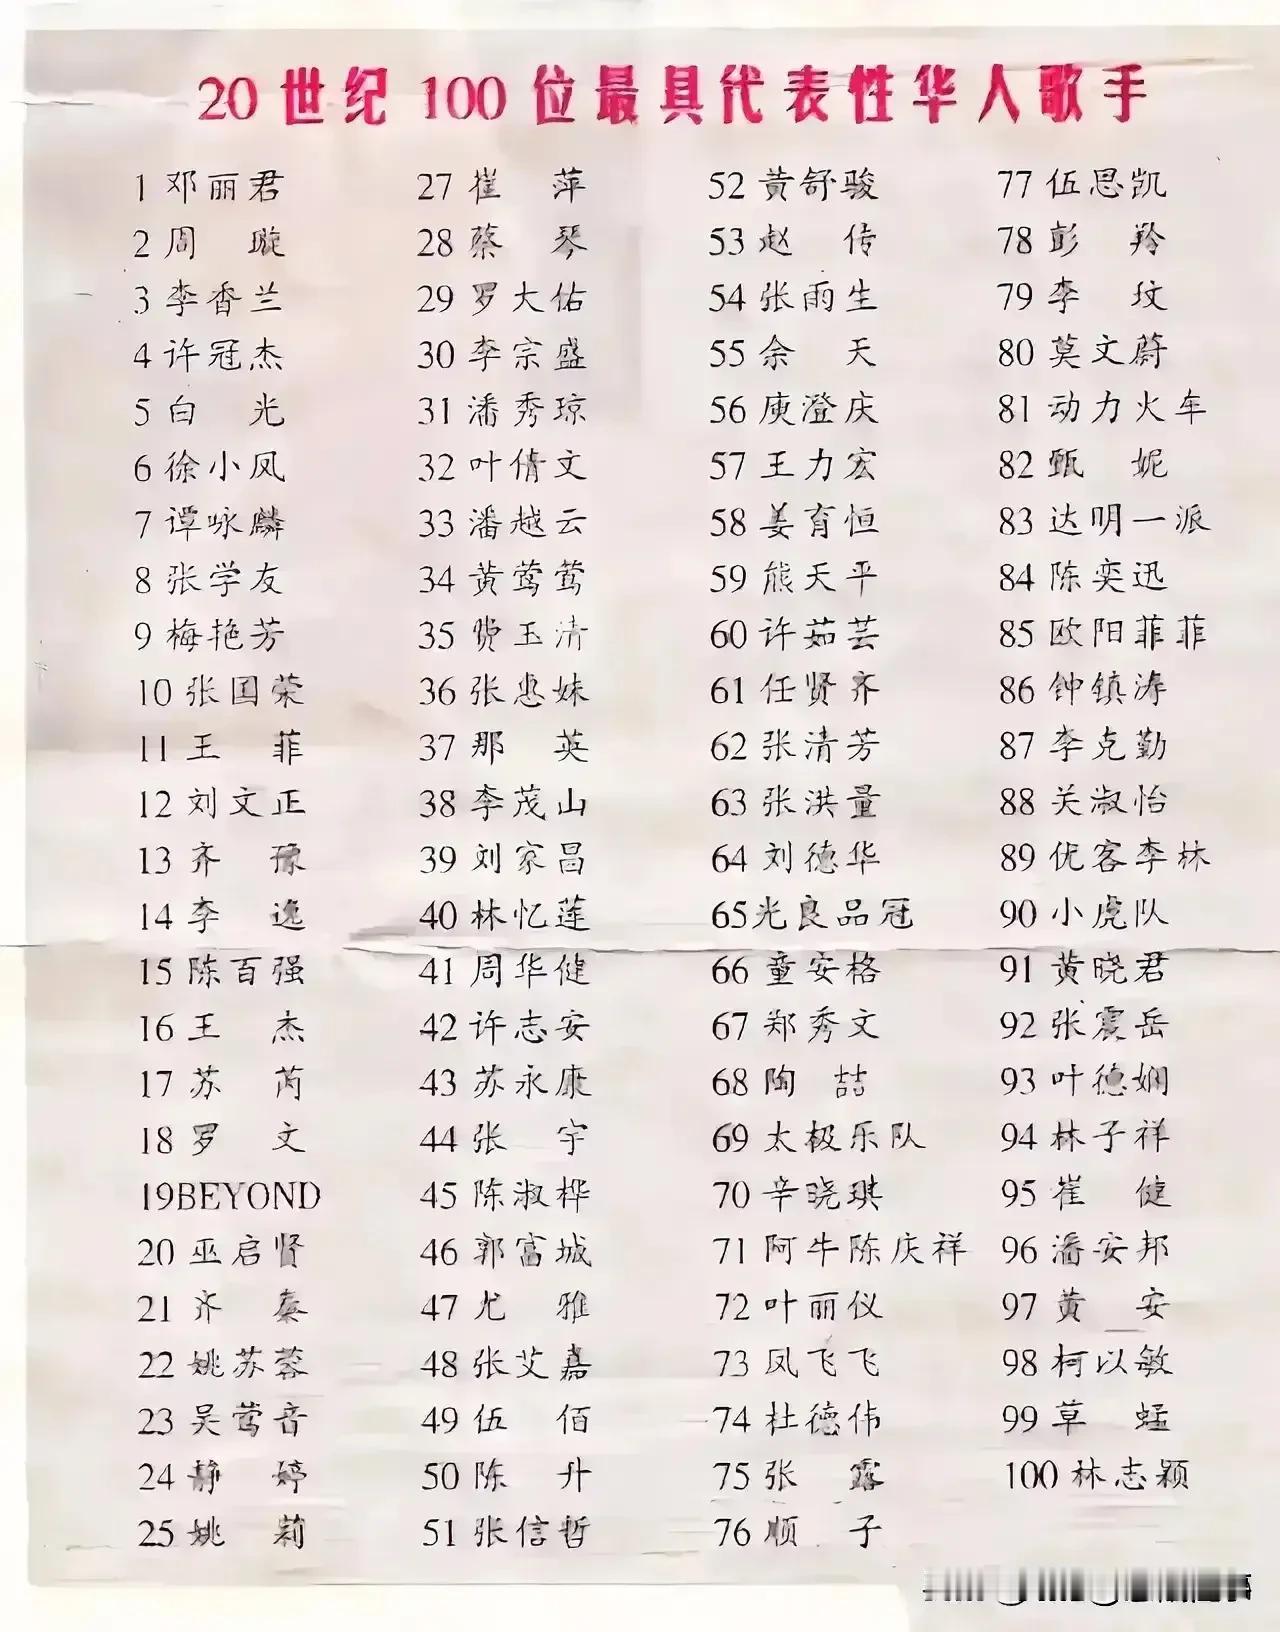 20世纪100位最具代表性华人歌手
1 邓丽君
2 周 璇
3 李香兰
4 许冠杰
5 白 光
6 徐小凤
7 谭咏麟
8 张学友
9 梅艳芳
10 张国荣
11 王 菲
12 刘文正
13 齐 豫
14 李 逸
15 陈百强
16 王 杰
17 苏 芮
18 罗 文
19BEYOND
20 巫启贤
21 齐 秦
22 姚苏蓉
23 吴莺音
24 静 婷
25 姚 莉
27 崔 萍
28 蔡 琴
29 罗大佑
30 李宗盛
31 潘秀琼
32 叶倩文
33 潘越云
34 黄莺莺
35 费玉清
36 张惠妹
37 那 英
38 李茂山
39 刘家昌
40 林忆莲
41 周华健
42 许志安
43 苏永康
44 张 宇
45 陈淑桦
46 郭富城
47 尤 雅
48 张艾嘉
49 伍 佰
50 陈 升
51 张信哲
52 黄舒骏
53 赵 传
54 张雨生
55 余 天
56 庾澄庆
57 王力宏
58 姜育恒
59 熊天平
60 许茹芸
61 任贤齐
62 张清芳
63 张洪量
64 刘德华
65光良品冠
66 童安格
67 郑秀文
68 陶 喆
69 太极乐队
70 辛晓琪
71 阿牛陈庆祥
72 叶丽仪
73 凤飞飞
74 杜德伟
75 张 露
76 顺 子
77 伍思凯
78 彭 羚
79 李 玟
80 莫文蔚
81 动力火车
82 甄 妮
83 达明一派
84 陈奕迅
85 欧阳菲菲
86 钟镇涛
87 李克勤
88 关淑怡
89 优客李林
90 小虎队
91 黄晓君
92 张震岳
93 叶德娴
94 林子祥
95 崔 健
96 潘安邦
97 黄 安
98 柯以敏
99 草 蜢
100 林志颖